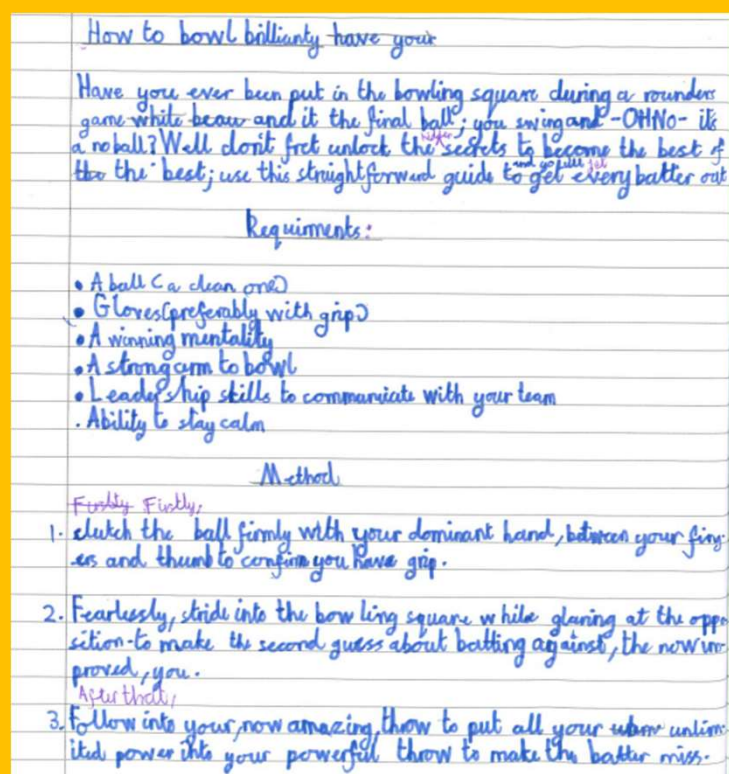 How to bowl brillianty have your
Have you ever been put in the bowling square during a rounders
game white beau and it the final ball; you swing and -OH No- it's
a no ball? Well don't fret unlock the secrets to become the best of
the the best; use this straightforward guide to get every batter out
Requirments:
• A ball (a clean one)
• Gloves (preferably with grip)
• A winning mentality
• A strong arm to bowl
• Leadership skills to communicate with your team
. Ability to stay calm
Method
Firstly,
1. clutch the ball firmly with your dominant hand, between your fing-
ers and thumb to confirm you have grip.
2. Fearlessly, stride into the bowling square while glaring at the oppo
sition-to make the second guess about batting against, the now im
proved, you.
After that,
3. Follow into your, now amazing, throw to put all your unlim-
ited power into your powerful throw to make the batter miss.